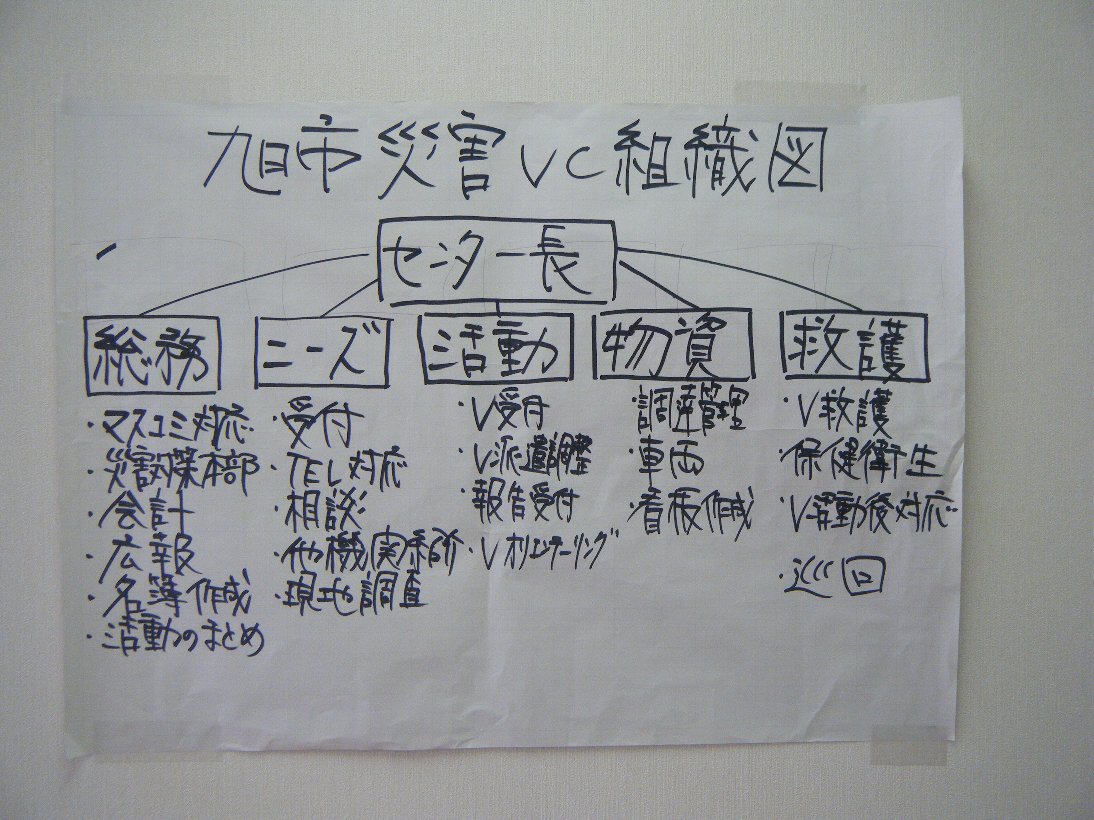 旭市災害VC組織図
センター長
総務
ニーズ
活動
物資
救護
・マスコミ対応
・災害対策本部
・会計
・広報
・名簿作成
・活動のまとめ
・受付
・TEL対応
・相談
・現地調査
・V受付
・V派遣調整
・報告受付
・Vオリエンテーリング
・調達管理
・車両
・看板作成
・V救護
・保健衛生
・V活動後対応
・巡回